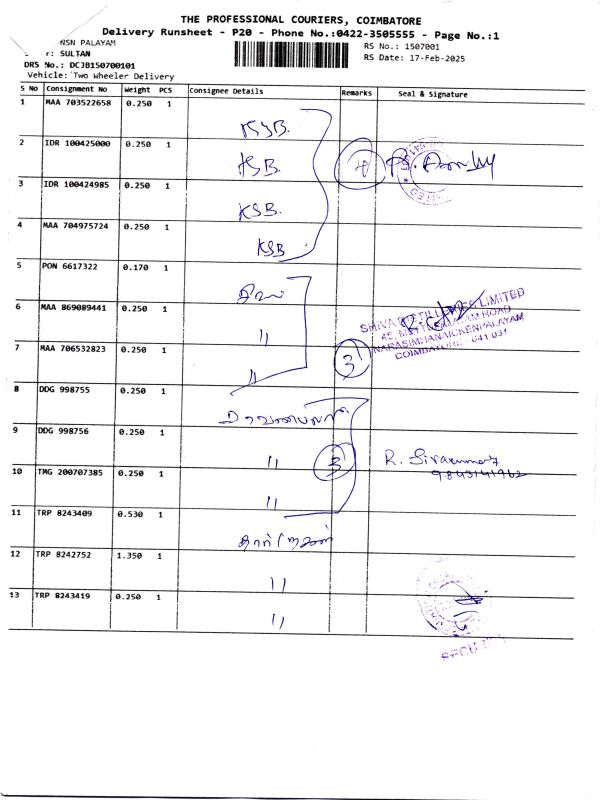 THE PROFESSIONAL COURIERS, COIMBATORE
Delivery Runsheet - P20 - Phone No.:0422-3505555 - Page No.:1
NSN PALAYAM
RS No.: 1507001
: SULTAN
RS Date: 17-Feb-2025
DRS No.: DCJB150700101
Vehicle: Two Wheeler Delivery
S No Consignment No Weight PCS Consignee Details Remarks Seal & Signature
1 MAA 703522658 0.250 1 KSB.
2 IDR 100425000 0.250 1 KSB.
3 IDR 100424985 0.250 1 KSB.
4 MAA 704975724 0.250 1 KSB
5 PON 6617322 0.170 1
6 MAA 869089441 0.250 1 "
SHIVA TEXTILES LIMITED
NARASIMHANAICKENPALAYAM
COIMBATORE - 641 031
7 MAA 706532823 0.250 1 " 3
8 DDG 998755 0.250 1
9 DDG 998756 0.250 1 " 3 R.
9843141962
10 TMG 200707385 0.250 1 "
11 TRP 8243409 0.530 1
12 TRP 8242752 1.350 1 "
13 TRP 8243419 0.250 1 "